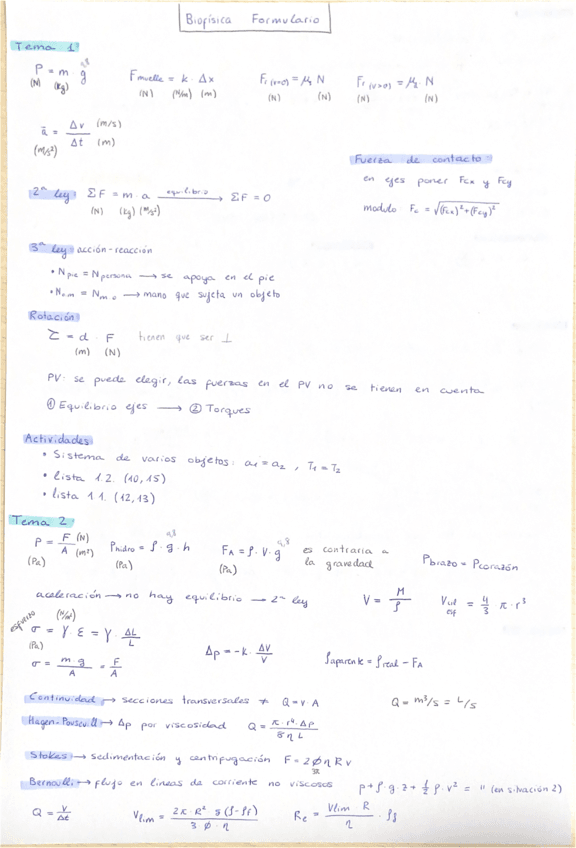 Biofísica Formulario
Tema 1
P = m g 9,8
(N) (kg)
Fmuelle = k · Δx
(N) (N/m) (m)
Fr (v=0) = μs N
(N) (N)
Fr (v>0) = N
(N) (N)
a = Δv / Δt (m/s) (m)
(m/s²)
Fuerza de contacto
en ejes poner Fcx y Fcy
modulo Fc = √(Fcx)²+(Fcy)²
2ª ley: ΣF = m · a equilibrio → ΣF = 0
(N) (kg) (m/s²)
3ª ley: acción-reacción
• Npie = Npersona → se apoya en el pie
• No.m = Nm o → mano que sujeta un objeto
Rotación:
Σ = d · F tienen que ser ⊥
(m) (N)
PV: se puede elegir, las fuerzas en el PV no se tienen en cuenta
① Equilibrio ejes → ② Torques
Actividades:
• Sistema de varios objetos: a1 = a2 , T1 = T2
• lista 1.2. (10,15)
• lista 1.1. (12,13)
Tema 2
P = F / A (N) (m²)
(Pa)
Phidro = ρ · g · h 9,8
(Pa)
FA = ρ · V · g 9,8
(Pa)
es contraria a
la gravedad
Pbrazo = Pcorazón
aceleración → no hay equilibrio → 2ª ley
V = M / ρ
= 4/3 π · r³
esfuerzo (N/m²)
σ = Y · ε = Y · ΔL / L
(Pa)
σ = m g / A = F / A
Δp = -k · ΔV / V
ρaparente = ρreal - FA
Continuidad → secciones transversales ≠ Q = v · A
Q = m³/s = L/s
Hagen-Pouseuill → Δp por viscosidad Q = π · r⁴ · Δp / 8 η L
Stokes → sedimentación y centrifugación F = 2 ϕ η R v
3π
Bernoulli → flujo en lineas de corriente no viscosos p + ρ · g · z + 1/2 ρ · v² = " (en situación 2)
Q = V / Δt
Vlim = 2π · R² · g (ρ - ρf) / 3 · ϕ · η
Re = Vlim · R / η · ρf